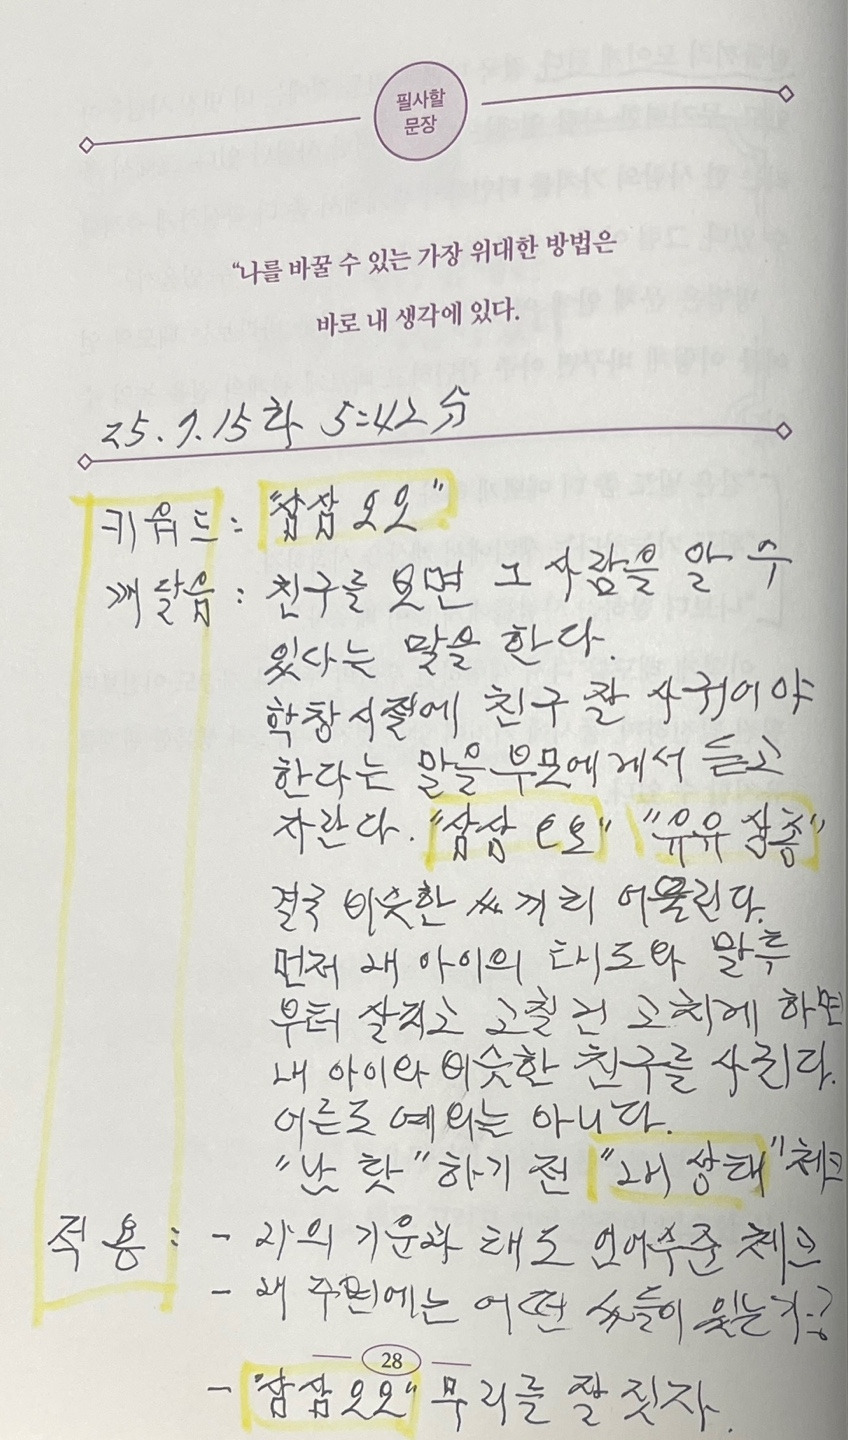 필사할
문장
“나를 바꿀 수 있는 가장 위대한 방법은
바로 내 생각에 있다.
25.7.15화 5:42分
키워드 : "삼삼오오"
깨달음 : 친구를 보면 그 사람을 알 수
있다는 말을 한다.
학창시절에 친구 잘 사귀어야
한다는 말을 부모에게서 듣고
자란다. "삼삼오오" "유유상종"
결국 비슷한 끼리 어울린다.
먼저 내 아이의 태도와 말투
부터 살피고 고칠 건 고치게 하면
내 아이와 비슷한 친구를 사귄다.
어른도 예외는 아니다.
"남 탓"하기 전 "내 상태" 체크
적용 : - 나의 기운과 태도 언어수준 체크
- 내 주변에는 어떤 들이 있는가?
- "삼삼오오" 무리를 잘 짓자.
28